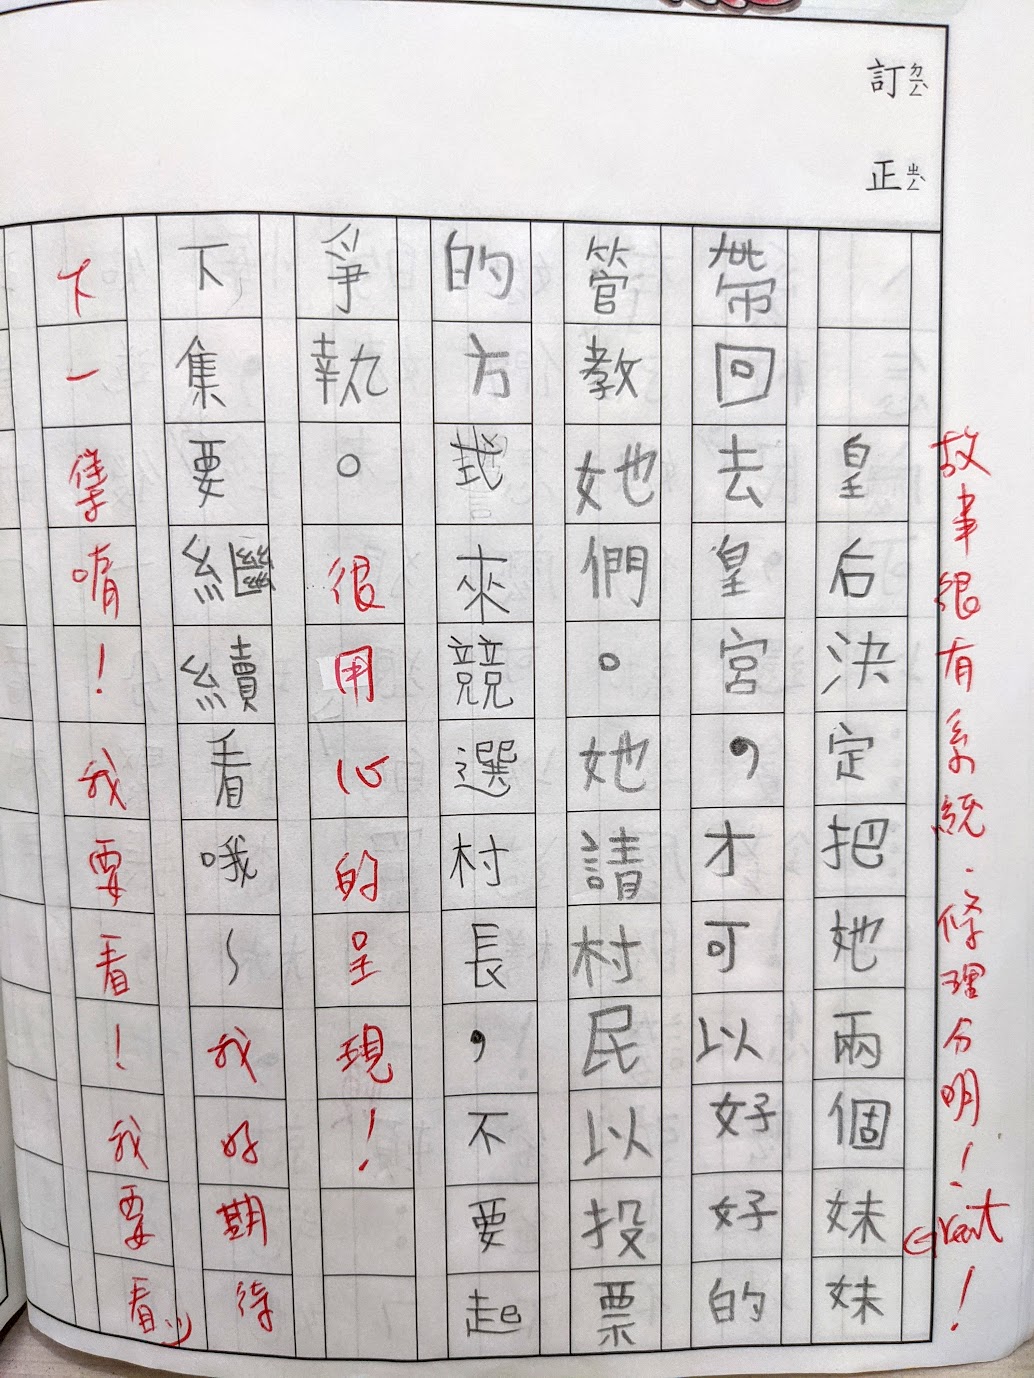 訂ㄉㄧㄥˋ正ㄓㄥˋ
故事很有系統、條理分明！Great！
皇后決定把她兩個妹妹
帶回去皇宮，才可以好好的
管教她們。她請村民以投票
的方式來競選村長，不要起
爭執。很用心的呈現！
下集要繼續看哦～我好期待
下一集唷！我要看！我要看